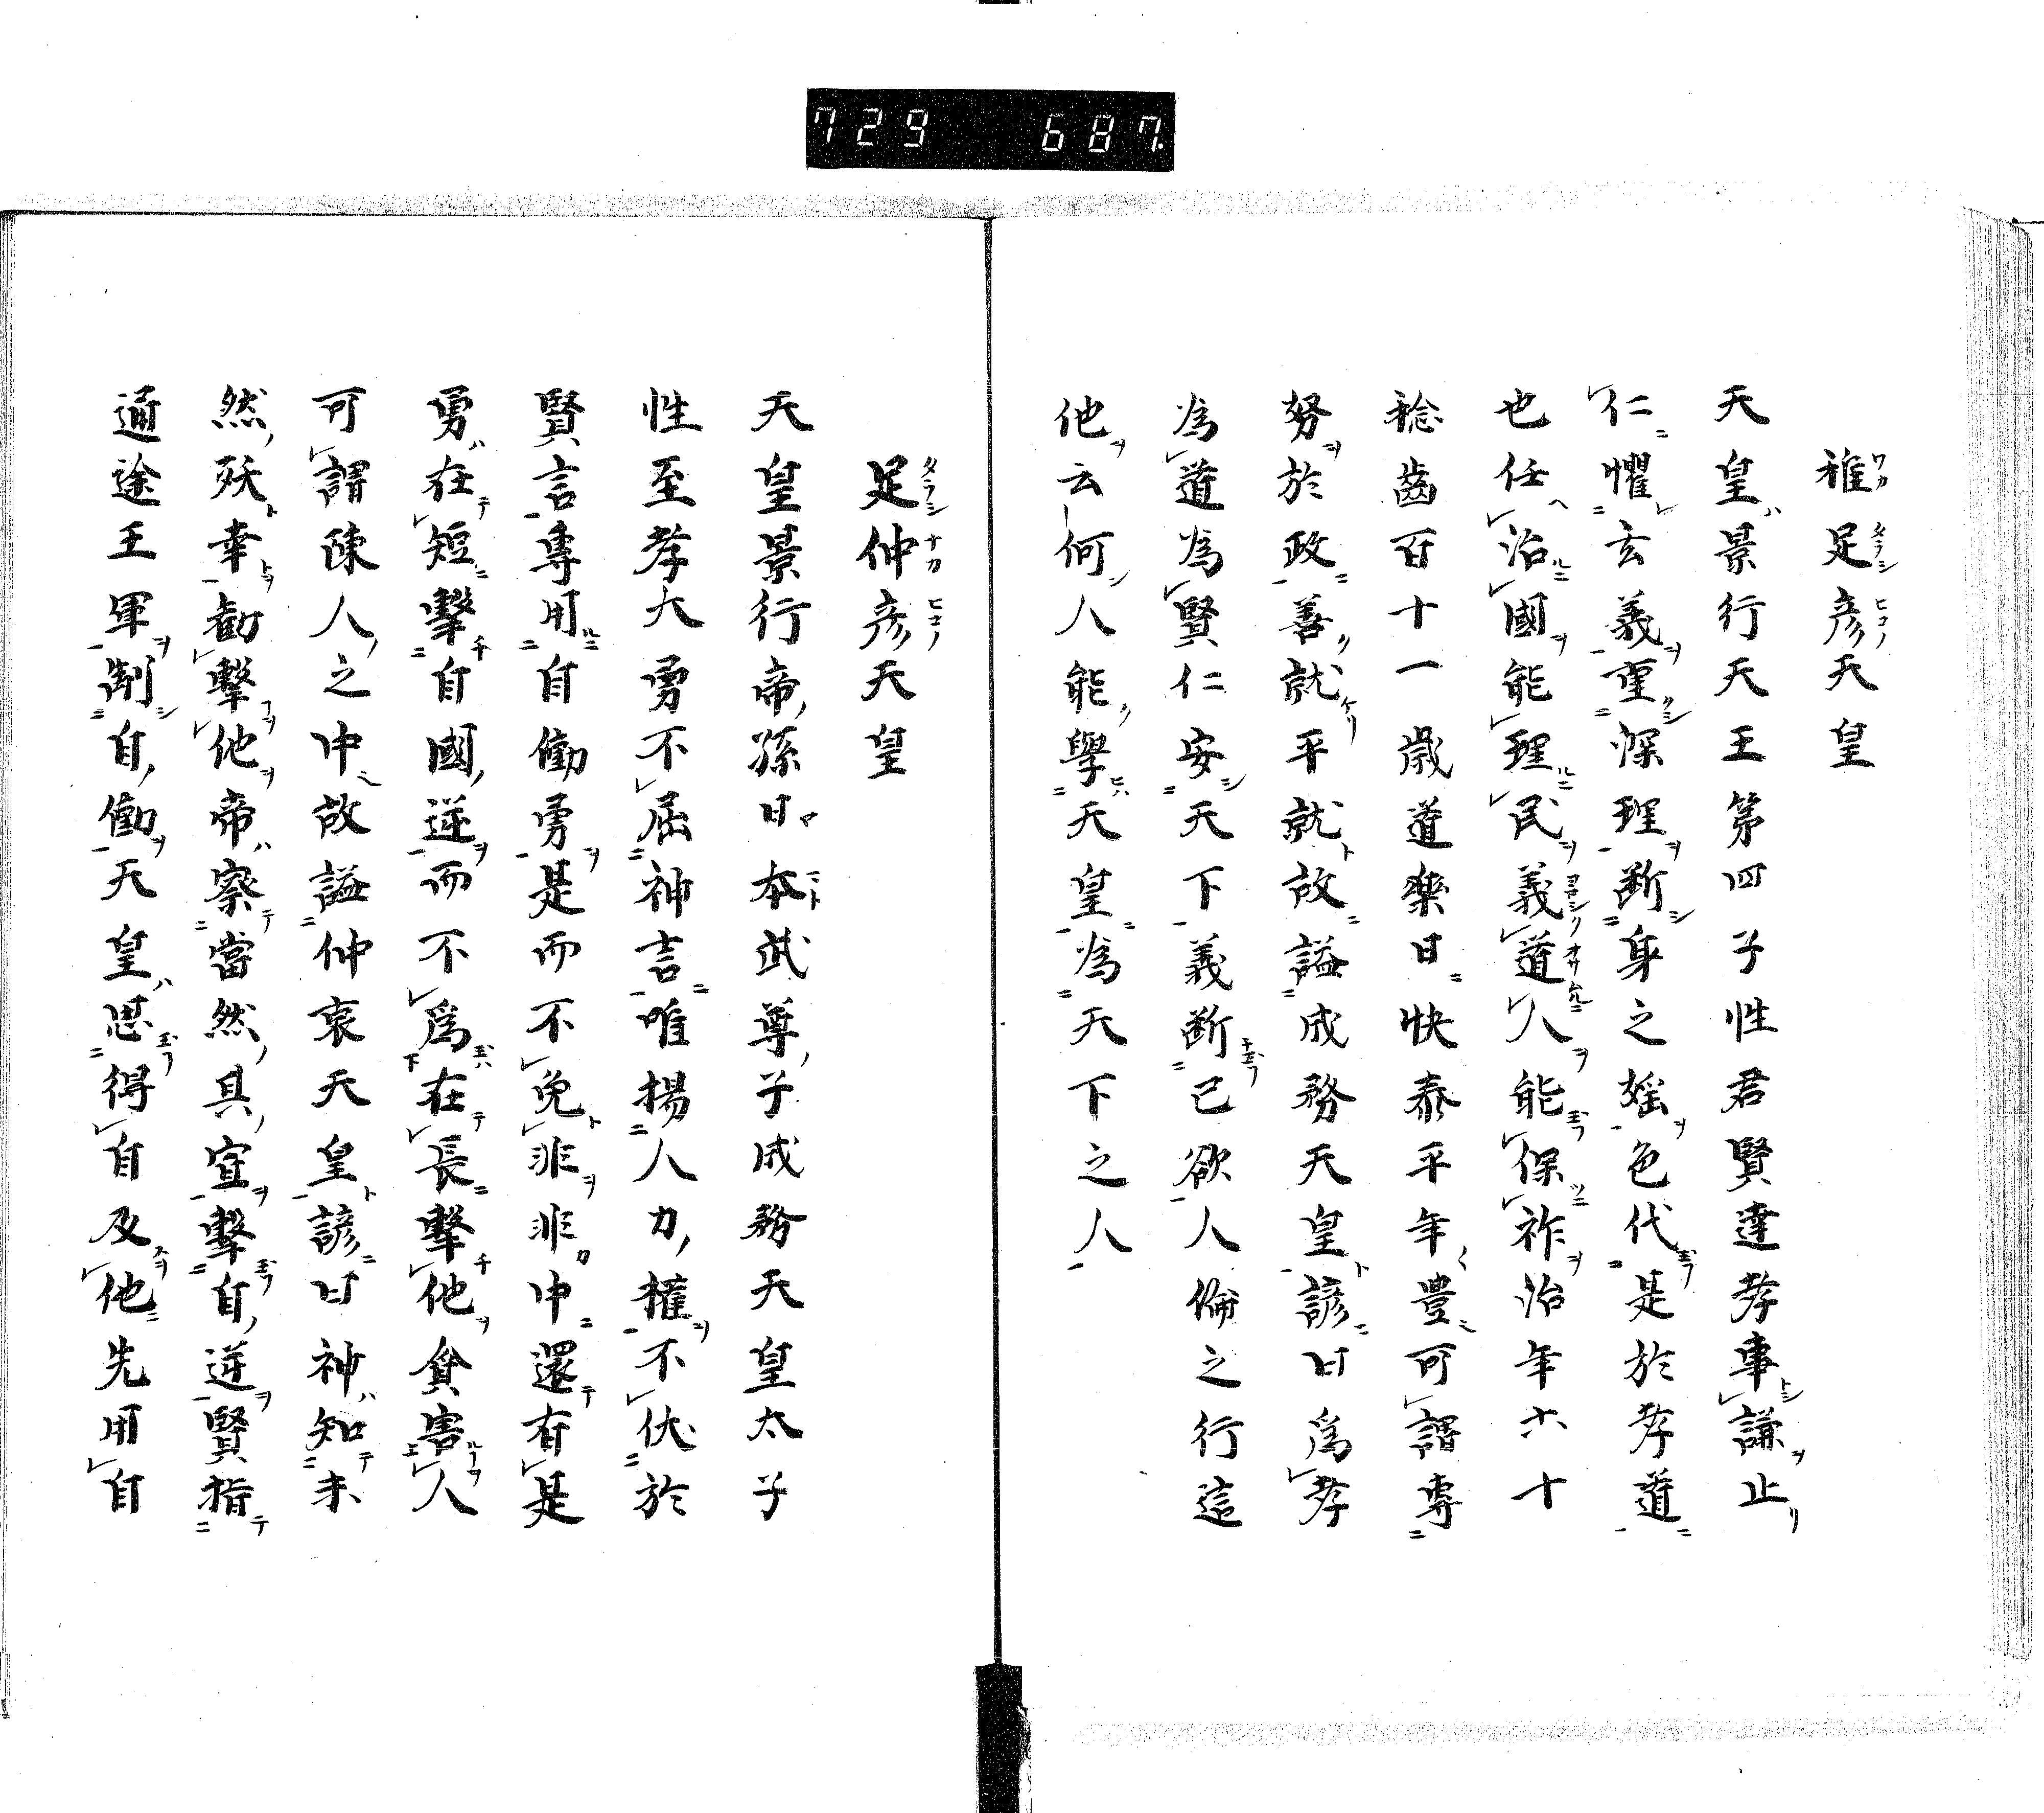 729 687.
稚足彦天皇
天皇景行天王第四子性君賢達孝事謙止
仁懼玄義重深理断身之媱色代是於孝道
也任治國能理民義道人能保祚治年六十
稔齒百十一歳道樂日快泰平年豊可謂専
努於政善就平就故謚成務天皇諺曰為孝
為道為賢仁安天下義断己欲人倫之行這
他云何人能學天皇為天下之人
足仲彦天皇
天皇景行帝孫日本武尊子成務天皇太子
性至孝大勇不屈神言唯揚人力權不伏於
賢言専用自働勇是而不免非非中還有是
勇在短擊自國逆而不為在長擊他貪害人
可謂陳人之中故謚仲哀天皇諺曰神知未
然殀幸勧擊他帝察當然具宜擊自逆賢指
通途王軍制自働天皇思得自及他先用自